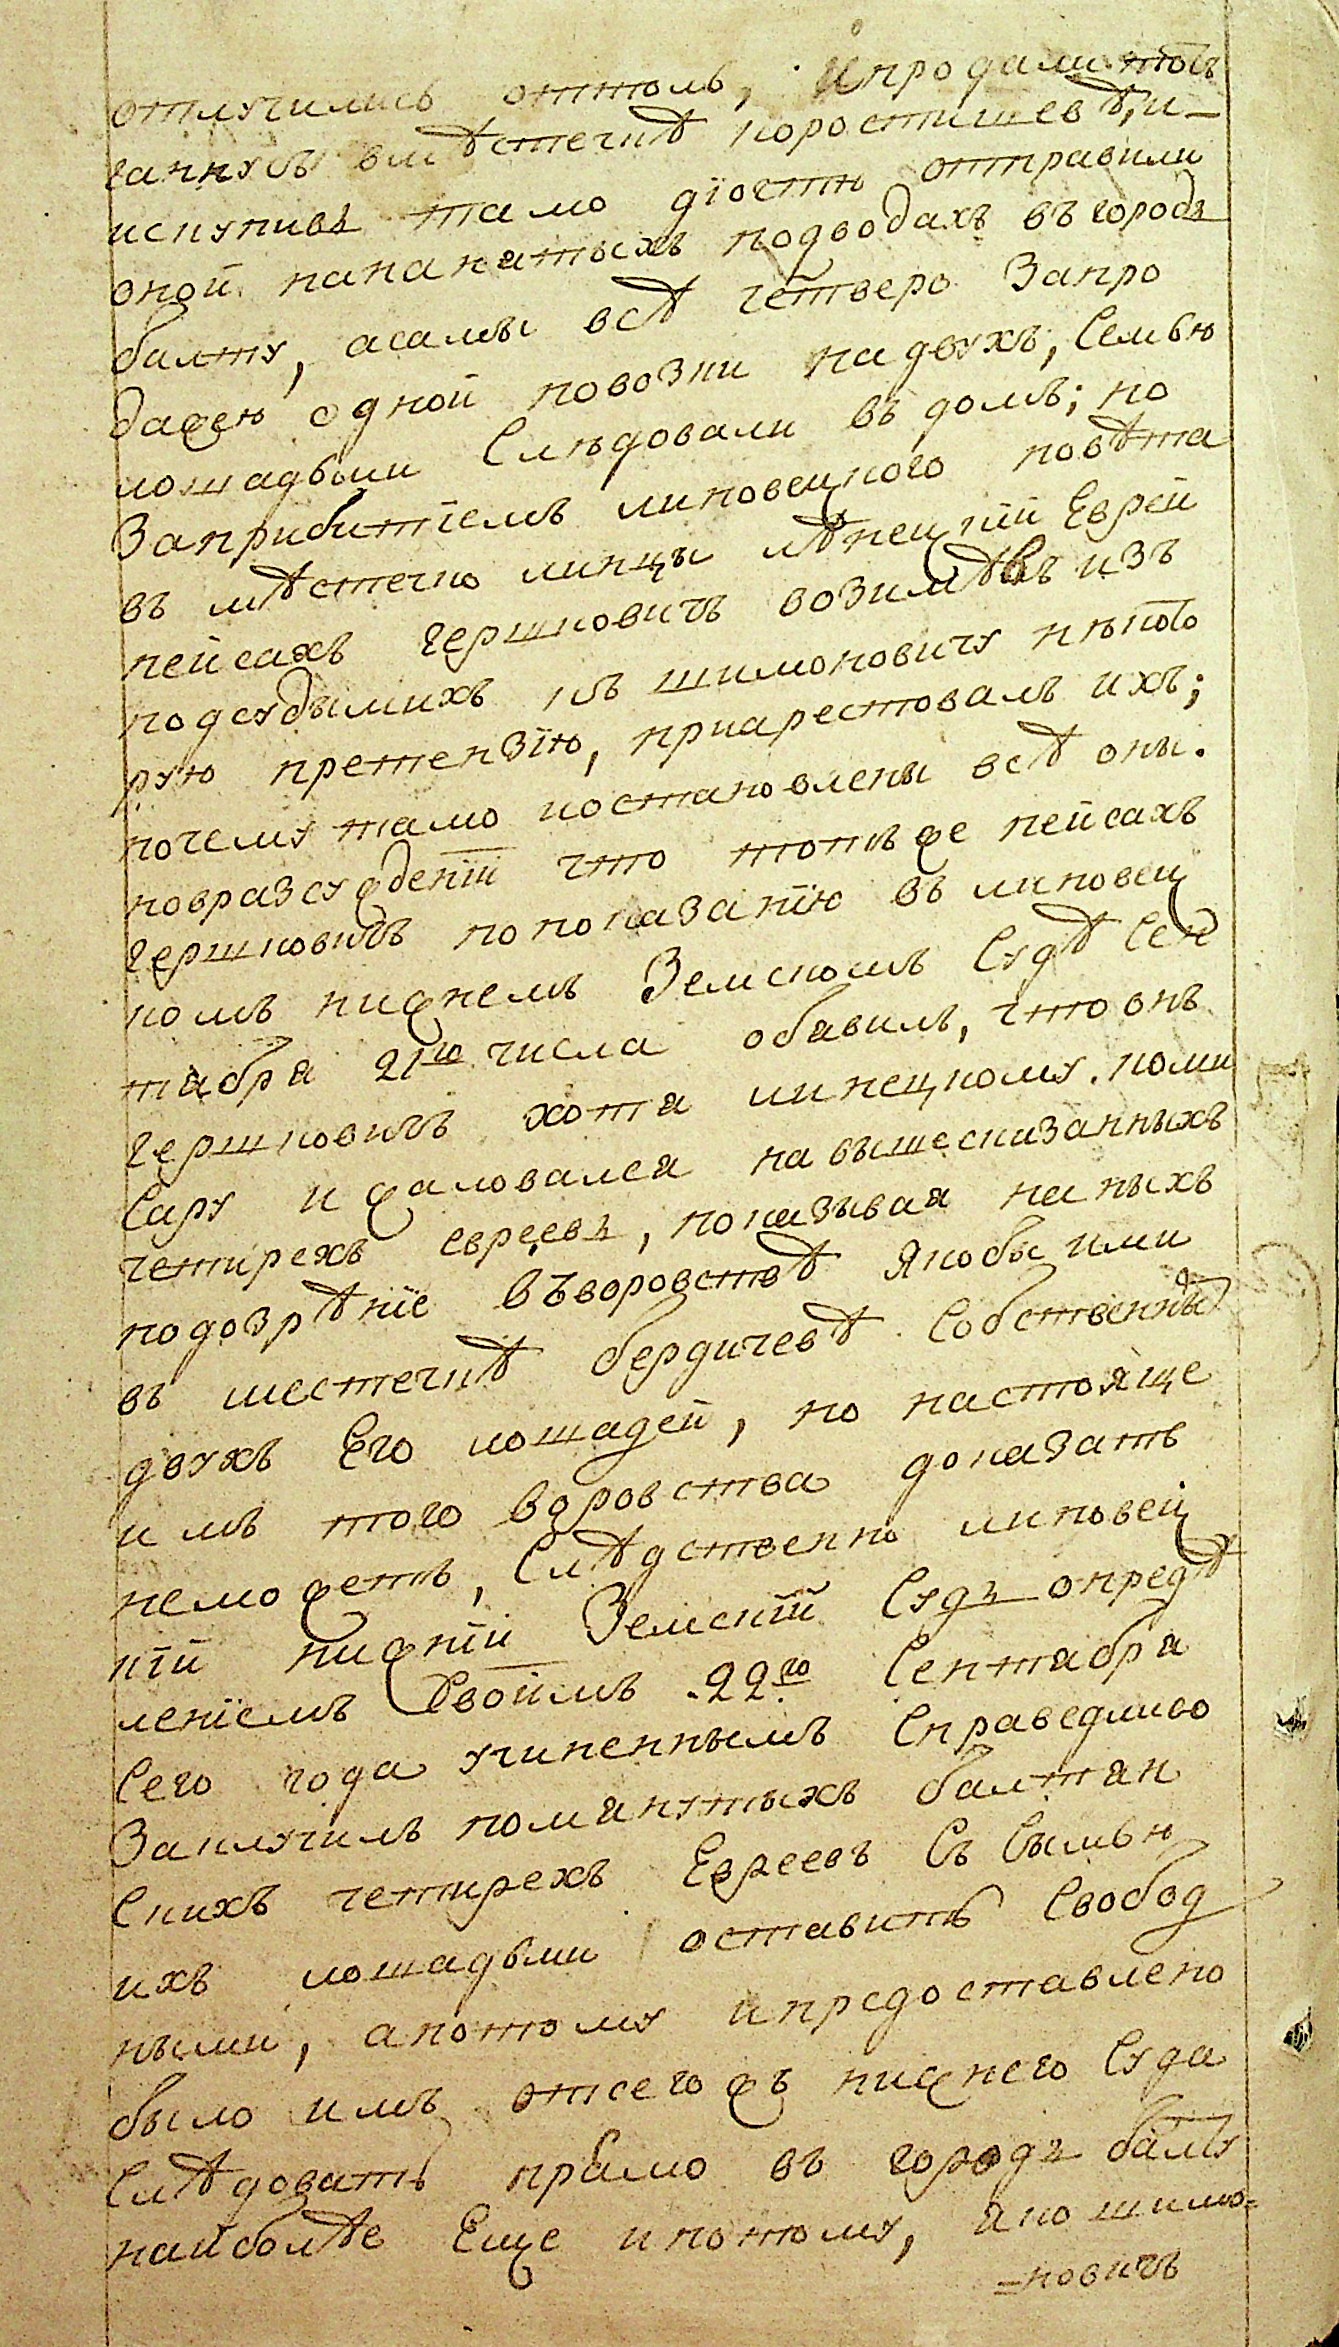 отлучились оттоль, и продали тов
ганнусъ вмѣстечкѣ коростишевѣ, и-
искупивъ тамо дiогтю отправили
оной нананятыхъ подводахъ въ городъ
балту, асамы всѣ четверо запро
дажею одной повозки на двухъ, семью
лошадьми слѣдовали въ домъ; но
Заприбитïемъ липовецкого повѣта
въ мѣстечко линцы лѣнецкïй Еврей
пейсахъ гершковичъ возимѣвъ изъ
подсудымихъ къ шимоновичу нѣкото
рую претензïю, приарестовалъ ихъ;
почему тамо костановлены всѣ оны.
новразсужденïи что тотъ же пейсахъ
гершковичъ попоказанïю въ липовец
комъ нижнемъ Земскомъ Судѣ Сен
табра 21го числа обавилъ, что онъ
гершковичъ хотя линецкому коми
Сару и жаловался на вышесказанныхъ
четирехъ евреевъ, показывая на ныхъ
подозрѣнïе въ воровствѣ якобы ими
въ местечкѣ бердичевѣ Собственныхъ
двухъ Его лошадей, но настояще
имъ того воровства доказать
неможетъ, Слѣдственно липовец
кïй нижнïй Земскïй Судъ опредѣ
ленïемъ Своимъ 22го Сентабра
Сего года учиненнымъ Справедливо
Заключилъ помянутыхъ балтян
Скихъ четирехъ Евреевъ Съ Сымью
ихъ лошадьми оставить Свобод
ными, апотому и предоставлено
было имъ отсегожъ нижнего Суда
Слѣдовать прамо въ городъ балту
наиболѣе Еще ипотому, яко шимо=
=новичъ